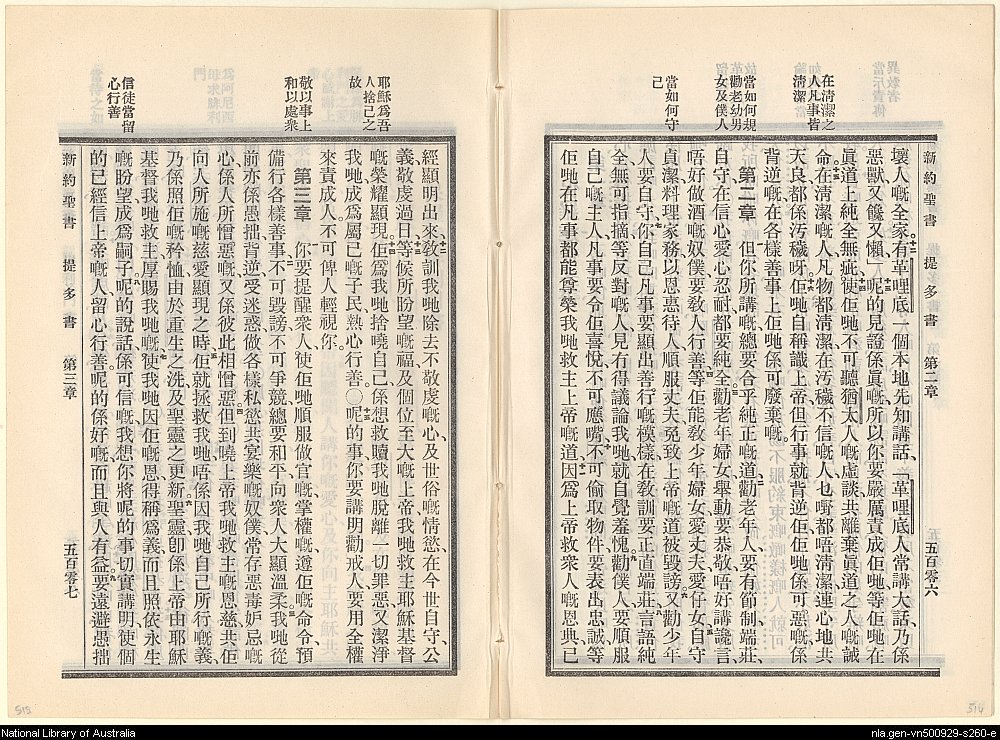 新約聖書 提多書 第二章 五百零六
在清潔之
人凡事皆
清潔
當如何規
勸老幼男
女及僕人
當如何守
己
壞人嘅全家、有革哩底一個本地先知講話、「革哩底人常講大話、乃係
惡獸、又饞又懶、」呢的見證係眞嘅、所以你要嚴厲責成佢哋、等佢哋在
眞道上純全無疵、使佢哋不可聽猶太人嘅虛談、共離棄眞道之人嘅誡
命、在清潔嘅人、凡物都清潔、在污穢不信嘅人、乜嘢都唔清潔、連心地共
天良、都係汚穢呀、佢哋自稱識上帝、但行事就背逆佢、佢哋係可惡嘅、係
背逆嘅、在各樣善事上、佢哋係可廢棄嘅、
第二章 但你所講嘅、總要合乎純正嘅道、勸老年人要有節制、端莊、
自守、在信心愛心忍耐、都要純全、勸老年婦女、舉動要恭敬、唔好講讒言、
唔好做酒嘅奴僕、要敎人行善、等佢能敎少年婦女、愛丈夫、愛仔女、自守、
貞潔、料理家務、以恩惠待人、順服丈夫、免致上帝嘅道被毀謗、又勸少年
人要自守、你自己凡事要顯出善行嘅模樣、在敎訓要正直端莊、言語純
全、無可指摘、等反對嘅人、見有得議論我哋、就自覺羞愧、勸僕人要順服
自己嘅主人、凡事要令佢喜悅、不可應嘴、不可偷取物件、要表出忠誠、等
佢哋在凡事都能尊榮我哋救主上帝嘅道、因爲上帝救衆人嘅恩典、已
耶穌爲吾
人捨己之
故
敬以事上
和以處衆
信徒當留
心行善
經顯明出來、敎訓我哋、除去不敬虔嘅心、及世俗嘅情慾、在今世自守、公
義、敬虔過日、等候所盼望嘅福、及個位至大嘅上帝、我哋救主耶穌基督
嘅榮耀顯現、佢爲我哋捨曉自己、係想救贖我哋脫離一切罪惡、又潔淨
我哋、成爲屬己嘅子民、熱心行善。〇呢的事、你要講明、勸戒人、要用全權
來責成人、不可俾人輕視你、
第三章 你要提醒衆人、使佢哋順服做官嘅、掌權嘅、遵佢嘅命令、預
備行各樣善事、不可毀謗、不可爭競、總要和平、向衆人大顯溫柔、我哋從
前亦係愚拙、背逆、受迷惑、做各樣私慾共宴樂嘅奴僕、常存惡毒妒忌嘅
心、係人所憎惡嘅、又係彼此相憎惡、但到曉上帝我哋救主嘅恩慈、共佢
向人所施嘅慈愛顯現之時、佢就拯救我哋、唔係因我哋自己所行嘅義、
乃係照佢嘅矜恤、由於重生之洗、及聖靈之更新、聖靈卽係上帝由耶穌
基督我哋救主、厚賜我哋嘅、使我哋因佢嘅恩得稱爲義、而且照依永生
嘅盼望成爲嗣子、呢的說話係可信嘅、我想你將呢的事切實講明、使個
的已經信上帝嘅人、留心行善、呢的係好嘅、而且與人有益、要遠避愚拙
新約聖書 提多書 第三章 五百零七
513
514
National Library of Australia
nla.gen-vn500929-s260-e